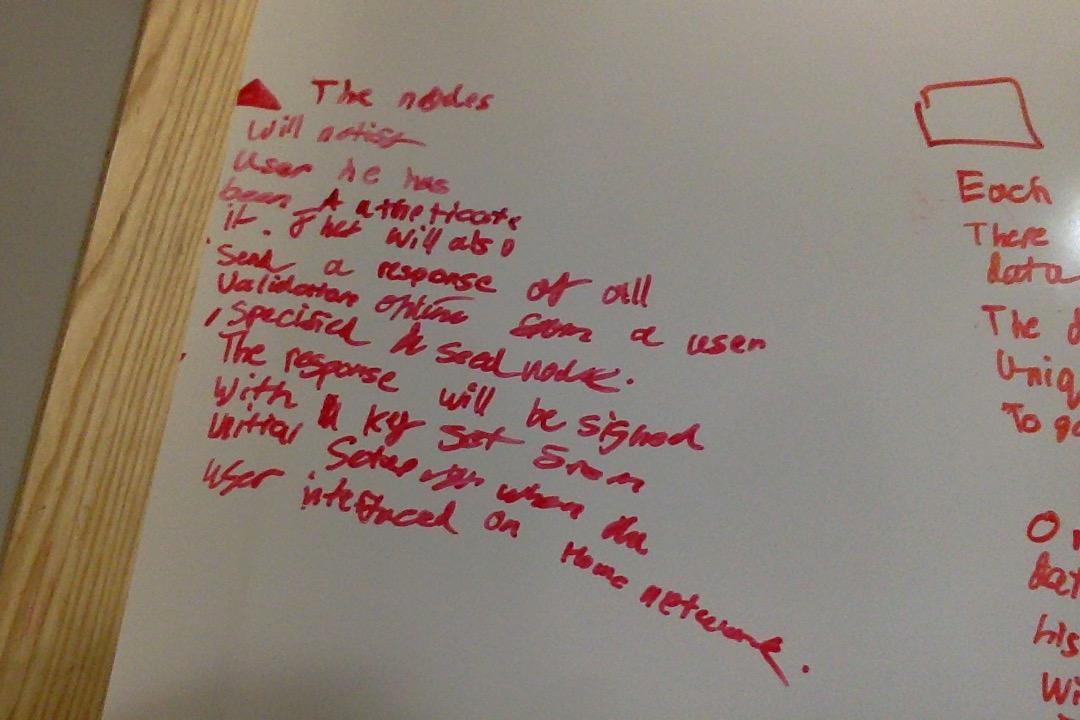 The nodes
Will
User he has
been Authenticate
it. That will also
Send a response of all
Validation from a user
Specified seed node.
The response will be signed
With a key set From
initial Setup when the
User interfaced on Home network.
Each
There
data
The
Uniq
To
his
Wi